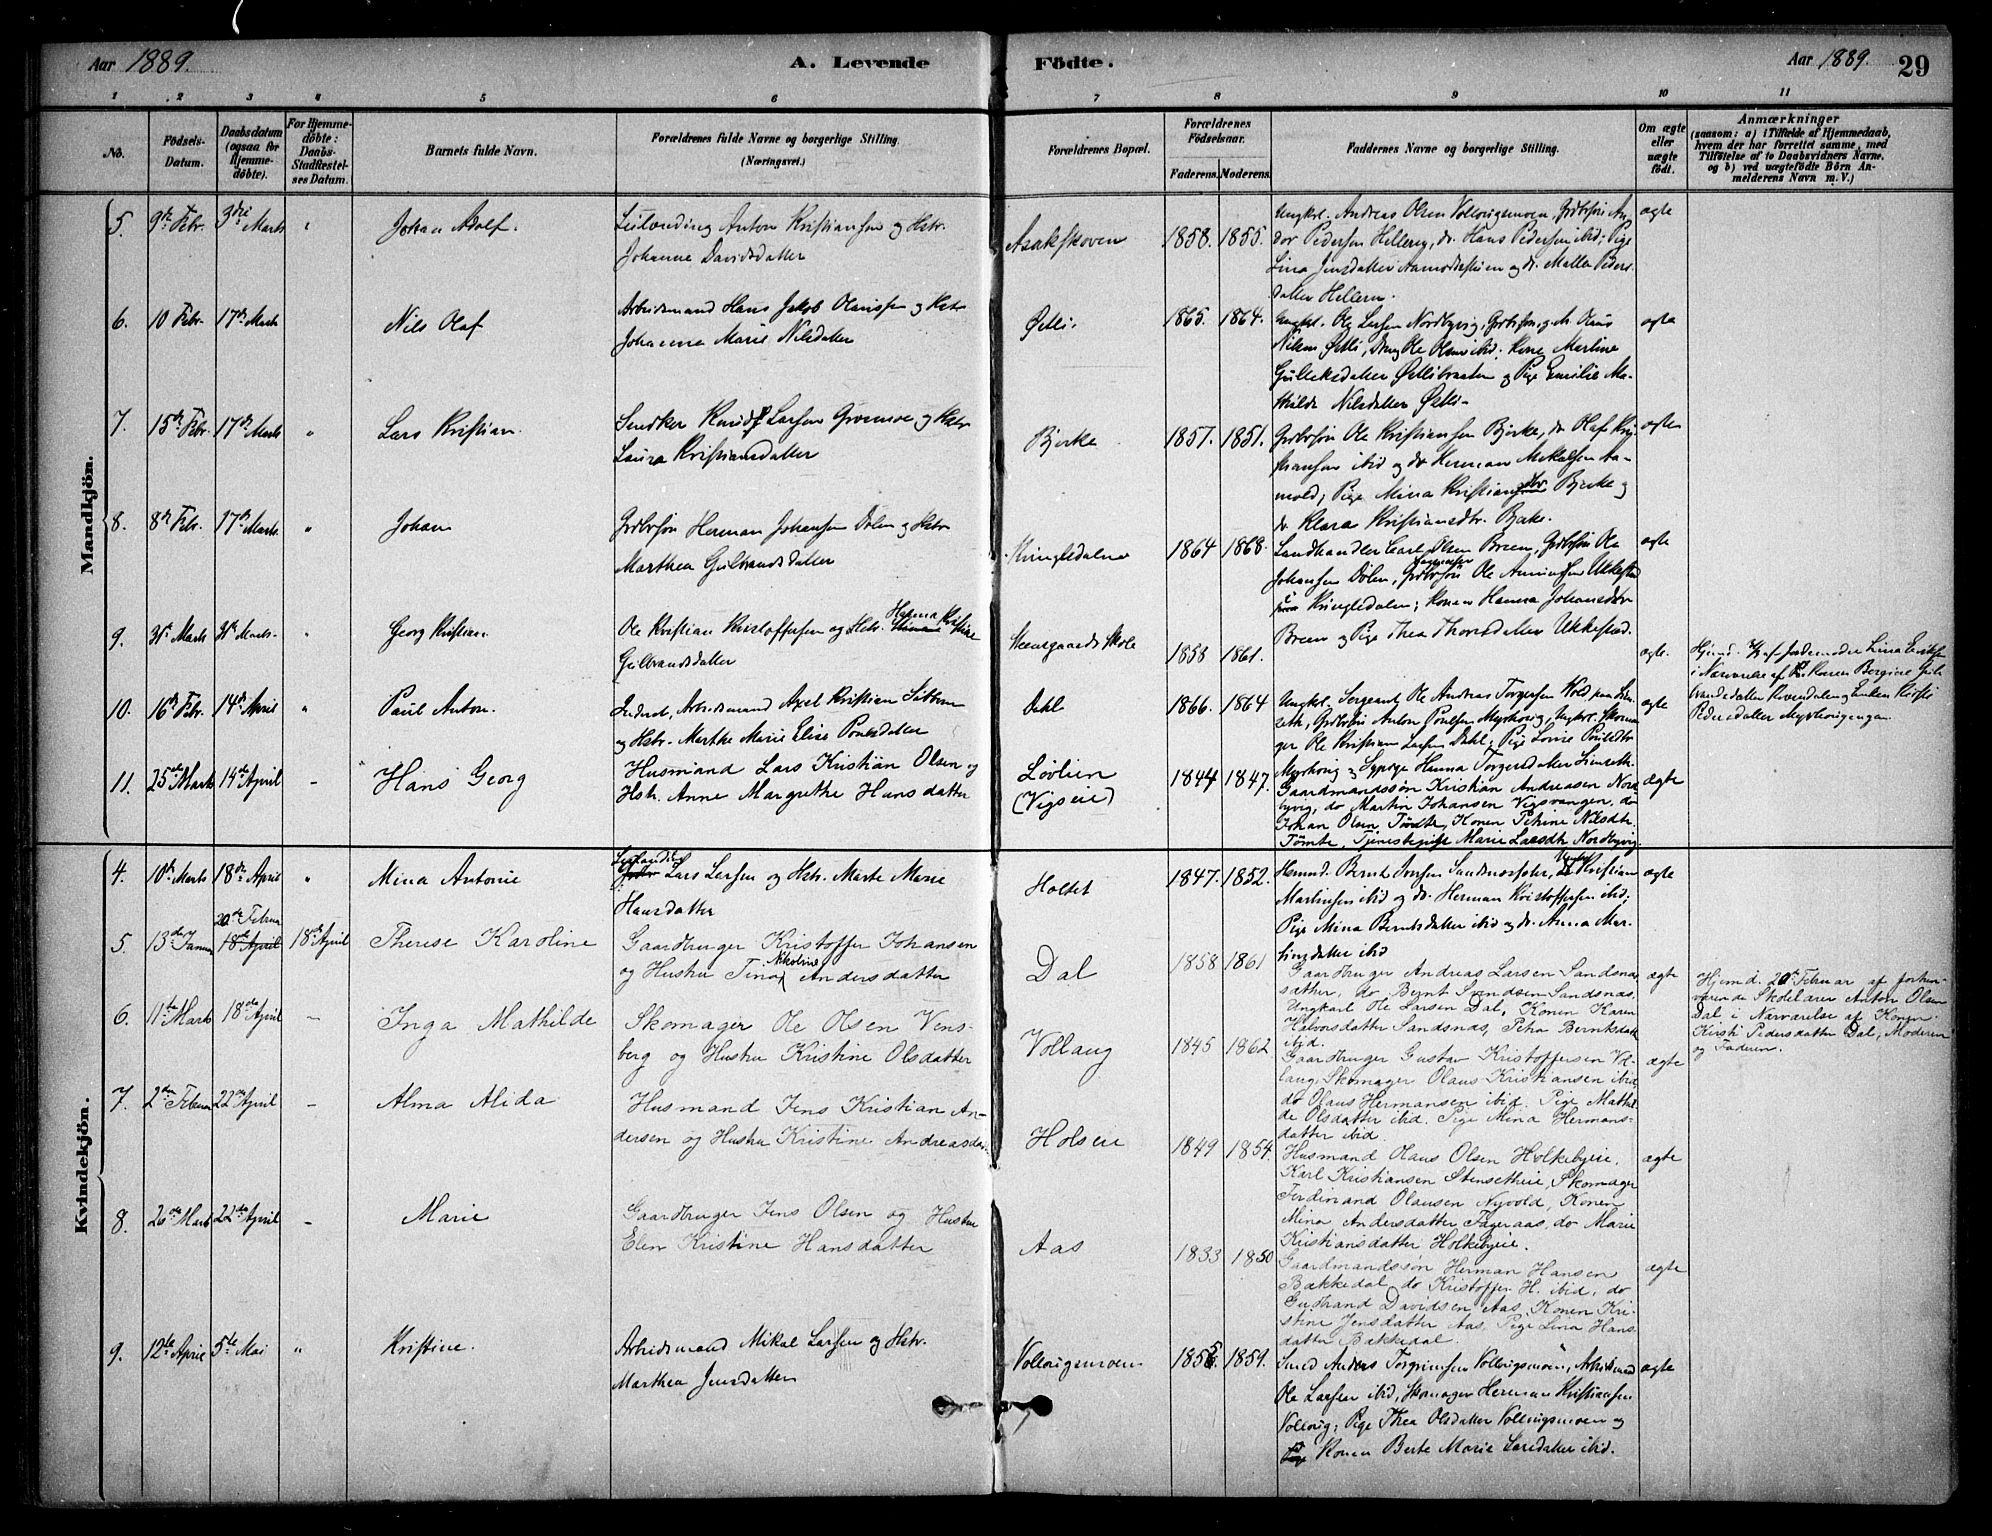 Aar 1889.
A. Levende
Födte.
Aar 1889.
29
1 2 3 4 5 6 7 8 9 10 11
No.
Födsels-
Datum.
Daabsdatum
(ogsaa for
Hjemme-
döbte).
For Hjemme-
döbte:
Daabs-
Stadfæstel-
ses Datum.
Barnets fulde Navn.
Forældrenes fulde Navne og borgerlige Stilling.
(Næringsvei.)
Forældrenes Bopæl.
Forældrenes
Födselsaar.
Faderens. Moderens.
Faddernes Navne og borgerlige Stilling.
Om ægte
eller
uægte
födt.
Anmærkninger
(saasom: a) i Tilfælde af Hjemmedaab,
hvem der har forrettet samme, med
Tilföielse af to Daabsvidners Navne,
og b) ved uægtefödte Börn An-
melderens Navn m. V.)
Mandkjön.
5. 9de Febr. 3die Marts
Johan Adolf.
Leilænding Anton Kristiansen og Hstr.
Johanne Davidsdatter
Asakskoven
1858. 1855.
Ungkl. Andreas Olsen Vollaugsmoen, Grdbrsøn An-
dor Pedersen Helleren, do. Hans Pedersen ibid; Pige
Lina Jensdatter og do. Mallen Peders-
datter Helleren.
ægte
6. 10 Febr. 17de Marts
Nils Olaf
Arbeidsmand Hans Jakob Olaussen og Hstr
Johanne Marie Nilsdatter
Østli.
1865. 1864.
Ungkl. Ole Larsen Nordbyvig, Grdbrsøn, g. M. Olaus
Nilsen Østli, Ole Olsen ibid. Kone Martine
Gulleksdatter Østlibraaten og Pige Emilie Ma-
thilde Nilsdatter Østli.
ægte
7. 15de Febr. 17de Marts "
Lars Kristian.
Snedker Knud Larsen Gromoe og Hstr
Laura Kristiansdatter
Bjerke
1857. 1851.
Grdbrsøn Ole Kristiansen Bjerke, do Olaf Kri-
stiansen ibid og do Herman Mikalsen Aa-
mold; Pige Mina Kristiansdtr. Bjerke og
do. Klara Kristiansdtr. Bjerke.
ægte
8. 8de Febr. 17de Marts "
Johan
Grdbrsøn Herman Johansen Dölen og Hstr
Marthea Gulbrandsdatter
Kringledalen
1864 1868.
Landhandler Carl Olsen Breen, Grdbrsøn Ole
Johansen Dölen, Grdbrsøn Ole Amundsen Ukkestad
i Kringledalen; Konen Hanna Johansdtr
Breen og Pige Thea Thorsdatter Ukkestad.
ægte
9. 31te Marts 31te Marts "
Georg Kristian.
Ole Kristian Kristoffersen og Hstr. Hanna Kristine
Gulbrandsdatter
Steensgaards Skole
1858 1861.
ægte.
Hjemd. af Jordemoder Lina Eriksen
i Nærværelse af Konen Bergine Gul-
brandsdatter og Enken Kirsti
Pedersdatter Myrhougengen.
10. 16de Febr. 14de April "
Paul Anton.
Inderst, Arbeidsmand Axel Kristian
og Hstr. Marthe Marie Elise Poulsdatter
Dahl
1866. 1864
Ungkl. Sergeant Ole Andreas Torgersen Hold paa
Grdbrsøn Anton Poulsen Myrhoug, Ungkl. Skoma-
ger Ole Kristian Larsen Dahl; Pige Lovise Poulsdtr
Myrhoug og Sypige Hanna Torgersdatter
ægte
11. 25de Marts 14de April -
Hans Georg
Husmand Lars Kristian Olsen og
Hstr. Anne Margrethe Hansdatter
Løvlien
(Vigseie)
1844 1847.
Gaardmandssøn Kristian Andreasen Nord-
byvig, do Martin Johansen Vigsvangen, do
Johan Olsen Tømte, Konen Petrine Nilsdtr.
Tømte, Tjenestepige Marie Larsdtr Nordbyvig.
ægte
Kvindekjön.
4. 10de Marts 18de April "
Mina Antonie
Leilænding Lars Larsen og Hstr. Marte Marie
Hansdatter
Holtet
1847. 1852.
Husmd. Bernt Iversen Sandnessæter, Ungkl Kristian
Martinsen ibid og do. Herman Kristoffersen ibid;
Pige Mina Berntsdatter ibid og do. Anna Mar-
tinsdatter ibid
ægte
5. 13de Januar 20de Februar 18de April 18de April
Therese Karoline
Gaardbruger Kristoffer Johansen
og Hustru Tina Nikoline Andersdatter
Dal
1858 1861
Gaardbruger Andreas Larsen Sandsnæs-
sæther, do Bernt Svendsen Sandsnæs.
Ungkarl Ole Larsen Dal, Konen Karen
Halvorsdatter Sandsnæs, Petra Berntsdatter
ibid.
ægte
Hjemd. 20de Februar af forhen-
værende Skolelærer Anton Olsen
Dal i Nærværelse af Konen
Kirsti Pedersdatter Dal, Moderen
og Faderen.
6. 11te Marts 18de April -
Inga Mathilde
Skomager Ole Olsen Vens-
berg og Hustru Kristine Olsdatter
Vollaug
1845 1862
Gaardbruger Gustav Kristoffersen Vol-
laug, Skomager Olaus Kristiansen ibid,
do Olaus Hermansen ibid. Pige Mathil-
de Olsdatter ibid. Pige Mina Hermans-
datter ibid.
ægte
7. 2den Februar 22de April -
Alma Alida
Husmand Jens Kristian An-
dersen og Hustru Kristine Andreasdtr.
Holseie
1849 1854.
Husmand Olaus Olsen Holkebyeie.
Karl Kristiansen Stenssetheie, Skomager
Ferdinand Olausen Nyvold, Konen
Mina Andersdatter Fageraas, do Marie
Kristiansdatter Holkebyeie.
ægte
8. 20de Marts 22de April -
Marie
Gaardbruger Jens Olsen og Hustru
Elen Kristine Hansdatter
Aas
1833 1850
Gaardmandssøn Herman Hansen
Bakkedal, do Kristoffer H. ibid, do
Gudbrand Davidsen Aas, Konen Kri-
stine Jensdatter Aas, Pige Lina Hans-
datter Bakkedal.
ægte
9. 12te April 5te Mai "
Kristine.
Arbeidsmand Mikal Larsen og Hstr.
Marthea Jensdatter
Vollaugsmoen
1855. 1859.
Smed Anders Torgrimsen Vollaugsmoen, Arbeidsmand
Ole Larsen ibid, Skomager Herman Kristiansen
Vollaug; Pige Thea Olsdatter Vollaugsmoen og
Konen Berte Marie Larsdatter ibid.
ægte